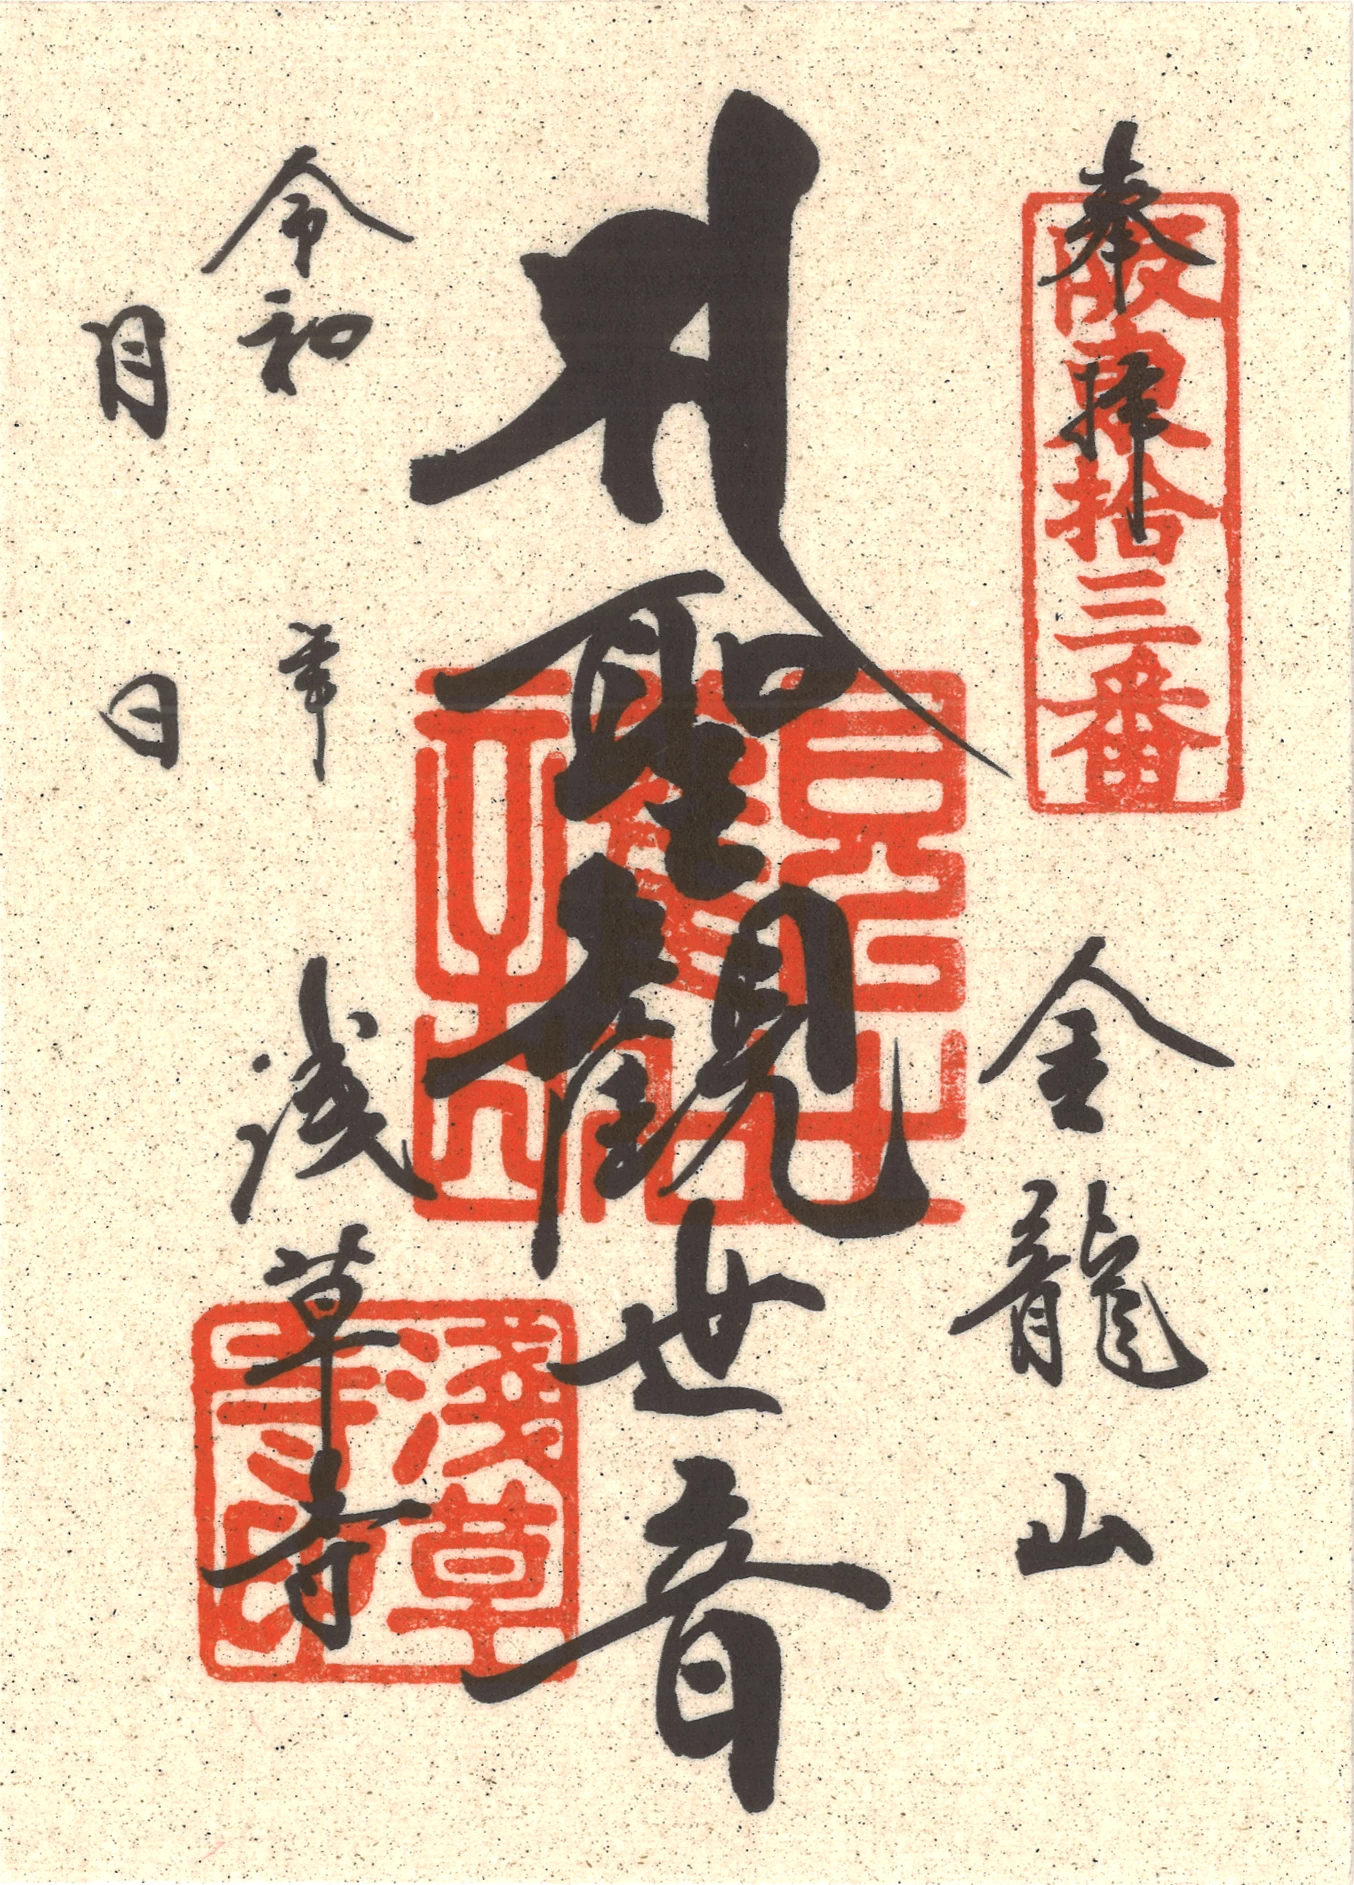 奉拝
阪東拾三番
金龍山
聖観世音
令和　年
月　日
浅草寺
淺草寺印